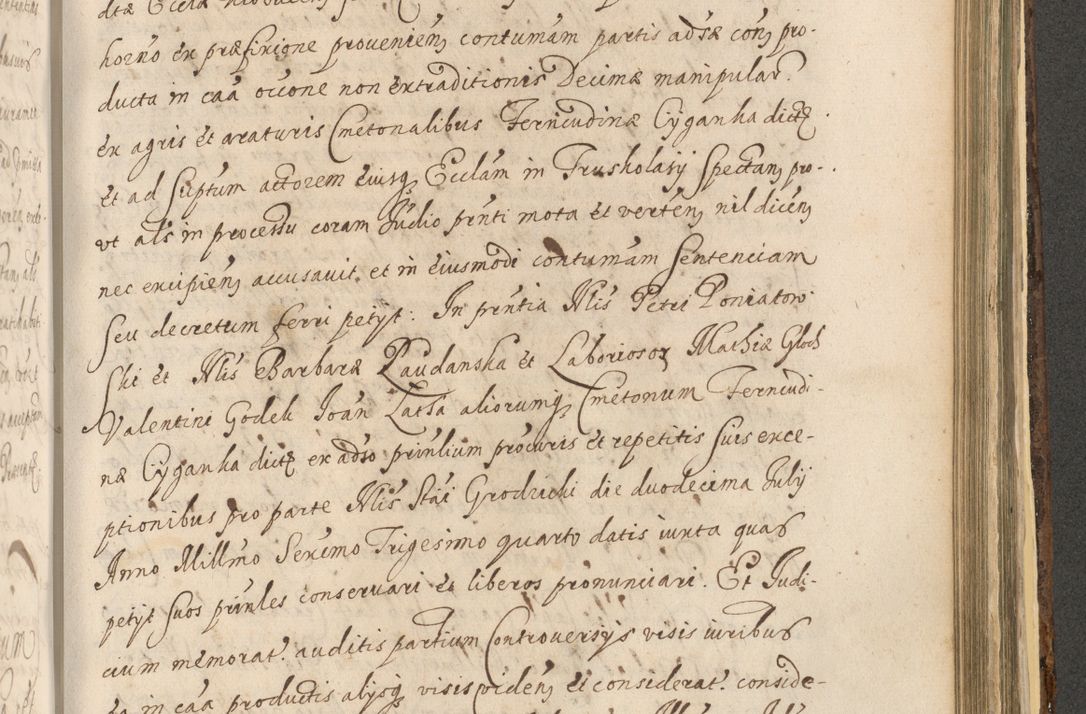 horno ex præfixione provenien contumam partis adsæ con pro-
ducta in caa occone non extraditionis Decimæ manipular.
ex agris et araturis Cmetonalibus Ferncudinæ Cyganka dictæ
et ad suptum actorem eiusq Ecclam in Truskolasy spectan pro-
vt als in processu coram Judio prnti mota et verten nil dicen
nec excipien accusavit et in eiusmodi contumam sentenciam
seu decretum ferri petijt. In prntia Nlis Petri Poniatow
ski et Nlis Barbaræ Paudanska et Laboriosor Mathiæ Gloch
Valentini Godek Joan Latka aliorumq Cmetonum Ferncudi-
næ Cyganka dictæ ex adso prinlium procuris et repetitis suis exce-
ptionibus pro parte Nlis Stai Grodzicki die duodecima July
Anno Millmo Sexcmo Trigesimo quarto datis iuxta quas
petijt suos prinles conservari et liberos pronunciari. Et Judi-
cium memorat. auditis partium Controversijs visis iuribus
in caa productis alijsq visis viden et considerat. conside-